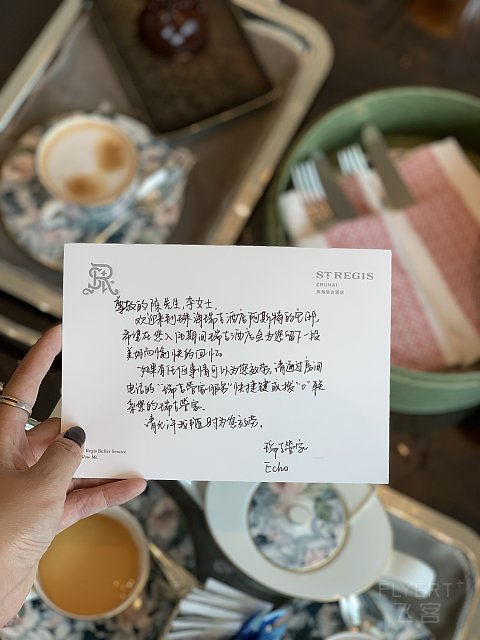 ST REGIS
ZHUHAI
珠海瑞吉酒店
尊敬的陈先生,李女士,
欢迎来到珠海瑞吉酒店阿斯特的宅邸,
希望在您入住期间瑞吉酒店会为您留下一段
美好而愉快的回忆。
如果有任何事情可以为您效劳,请通过房间
电话的"瑞吉管家服务"快捷键或拨"0"联
系您的瑞吉管家.
请允许我随时为您效劳.
瑞吉管家
Echo
Regis Butler Service
FLYERT
飞客